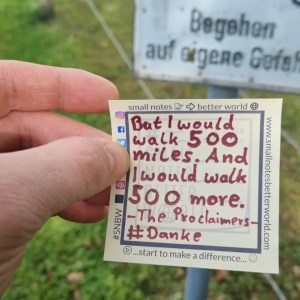 Begehen
auf eigene Gefahr
small notes → better world
But I would
walk 500
miles. And
I would walk
500 more.
-The Proclaimers-
#Danke
...start to make a difference...
#SNBW
www.smallnotesbetterworld.com